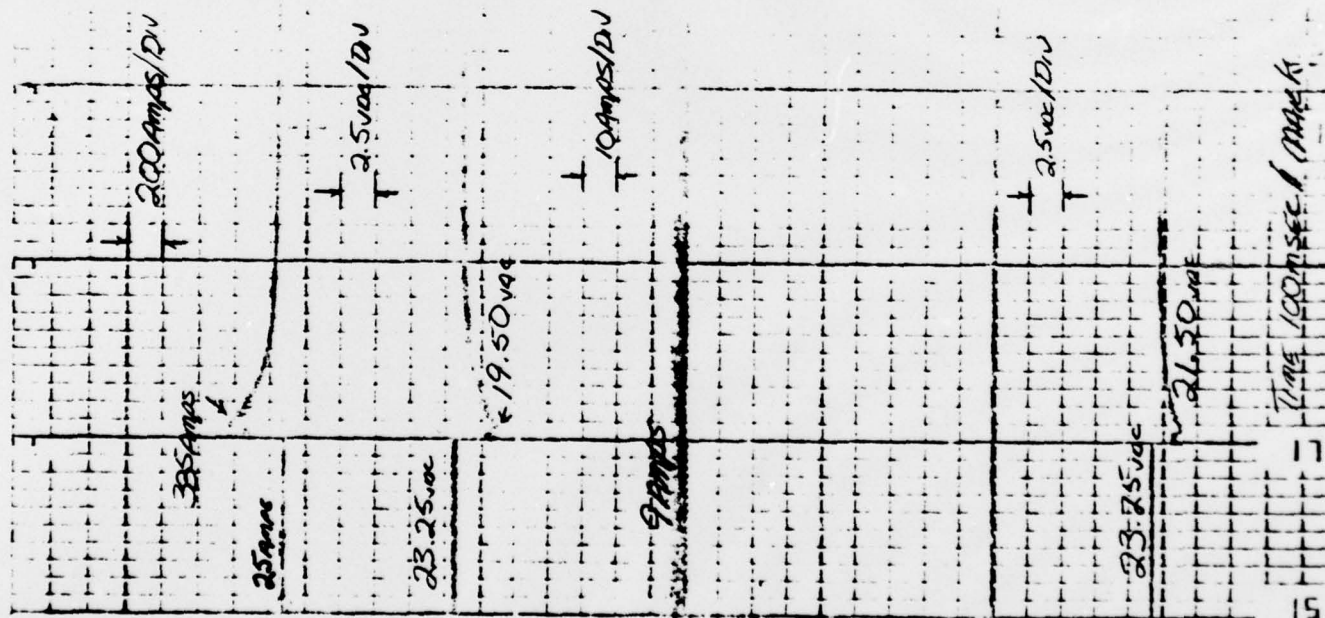 200AMPS/DIV
385AMPS
25AMPS
2.5VDC/DIV
23.25VDC
19.50VDC
10AMPS/DIV
9AMPS
2.5VDC/DIV
23.25VDC
21.50VDC
TIME 100MSEC/
17
15